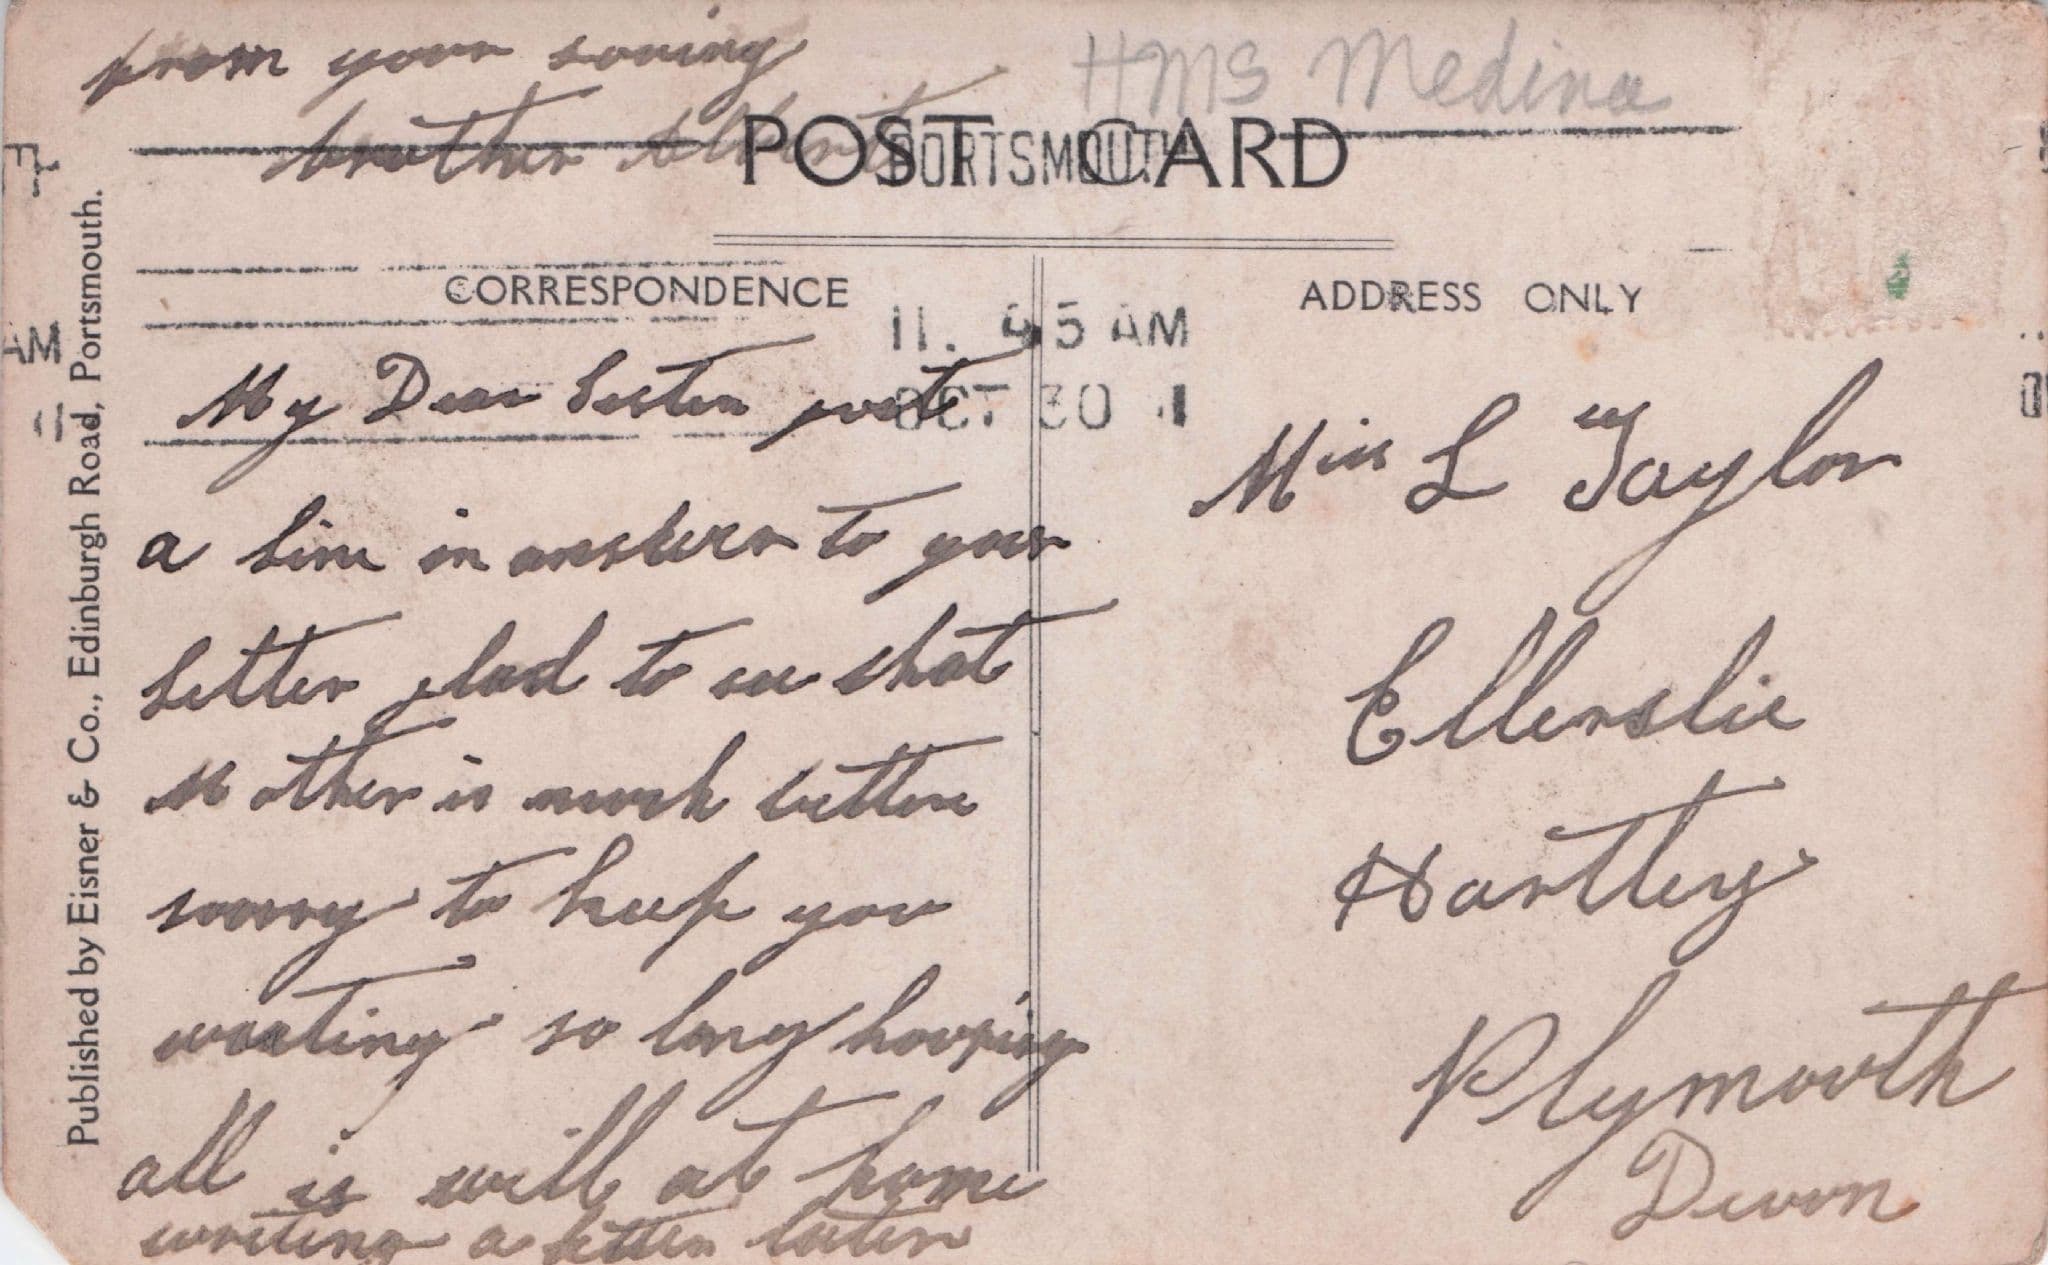 from your loving
brother Albert
HMS Medina
POST CARD
PORTSMOUTH
CORRESPONDENCE
ADDRESS ONLY
11. 45 AM
OCT 30
AM
My Dear Sister just
a line in answer to your
letter glad to see that
Mother is much better
sorry to keep you
waiting so long hooping
all is will at home
writing a letter later
Miss L Taylor
Ellerslie
Hartley
Plymouth
Devon
Published by Eisner & Co., Edinburgh Road, Portsmouth.